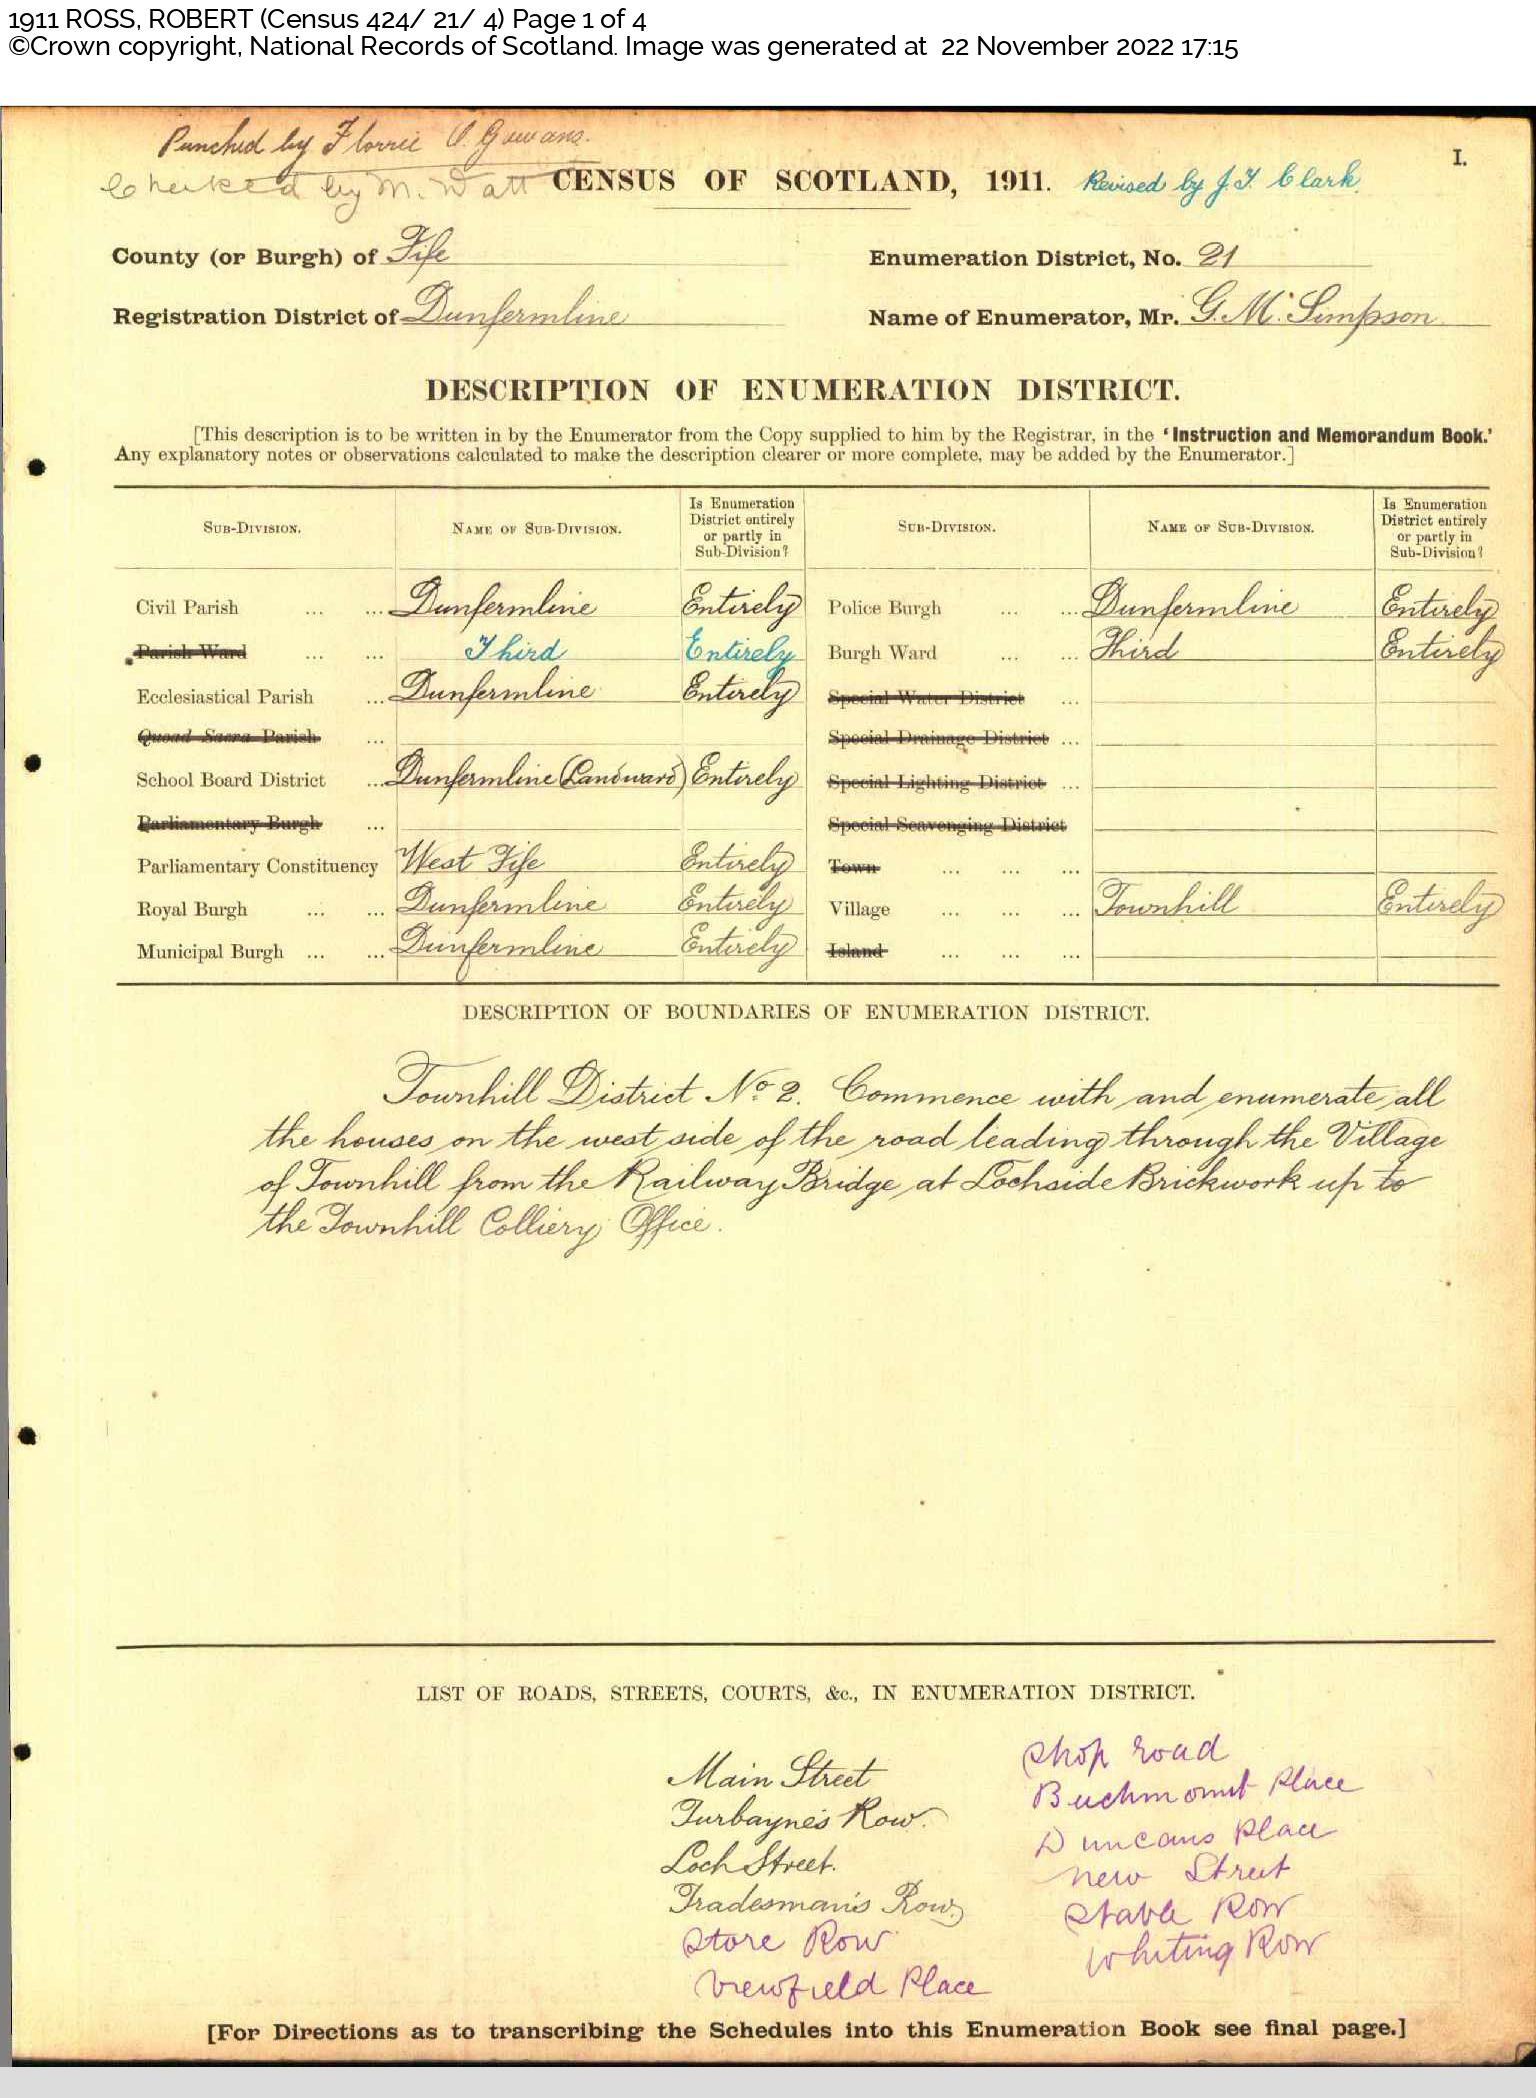 1911 ROSS, ROBERT (Census 424/ 21/ 4) Page 1 of 4
©Crown copyright, National Records of Scotland. Image was generated at 22 November 2022 17:15
Punched by Florrie Gowans.
Checked by M. Watt
CENSUS OF SCOTLAND, 1911. Revised by J. Y. Clark.
I.
County (or Burgh) of Fife
Enumeration District, No. 21
Registration District of Dunfermline
Name of Enumerator, Mr. G. M. Simpson
DESCRIPTION OF ENUMERATION DISTRICT.
[This description is to be written in by the Enumerator from the Copy supplied to him by the Registrar, in the 'Instruction and Memorandum Book.'
Any explanatory notes or observations calculated to make the description clearer or more complete, may be added by the Enumerator.]
SUB-DIVISION. NAME OF SUB-DIVISION. Is Enumeration District entirely or partly in Sub-Division? SUB-DIVISION. NAME OF SUB-DIVISION. Is Enumeration District entirely or partly in Sub-Division?
Civil Parish ... ... Dunfermline Entirely Police Burgh ... ... Dunfermline Entirely
Parish Ward ... ... Third Entirely Burgh Ward ... ... Third Entirely
Ecclesiastical Parish ... Dunfermline Entirely Special Water District ...
Quoad Sacra Parish ... Special Drainage District ...
School Board District ... Dunfermline (Landward) Entirely Special Lighting District ...
Parliamentary Burgh ... Special Scavenging District
Parliamentary Constituency West Fife Entirely Town ... ... ...
Royal Burgh ... ... Dunfermline Entirely Village ... ... ... Townhill Entirely
Municipal Burgh ... ... Dunfermline Entirely Island ... ... ...
DESCRIPTION OF BOUNDARIES OF ENUMERATION DISTRICT.
Townhill District No. 2. Commence with and enumerate all
the houses on the west side of the road leading through the Village
of Townhill from the Railway Bridge at Lochside Brickwork up to
the Townhill Colliery Office.
LIST OF ROADS, STREETS, COURTS, &c., IN ENUMERATION DISTRICT.
Main Street
Turbayne's Row.
Loch Street.
Tradesman's Row
Store Row
Viewfield Place
Shop road
Place
Duncans Place
New Street
Stable Row
Whiting Row
[For Directions as to transcribing the Schedules into this Enumeration Book see final page.]